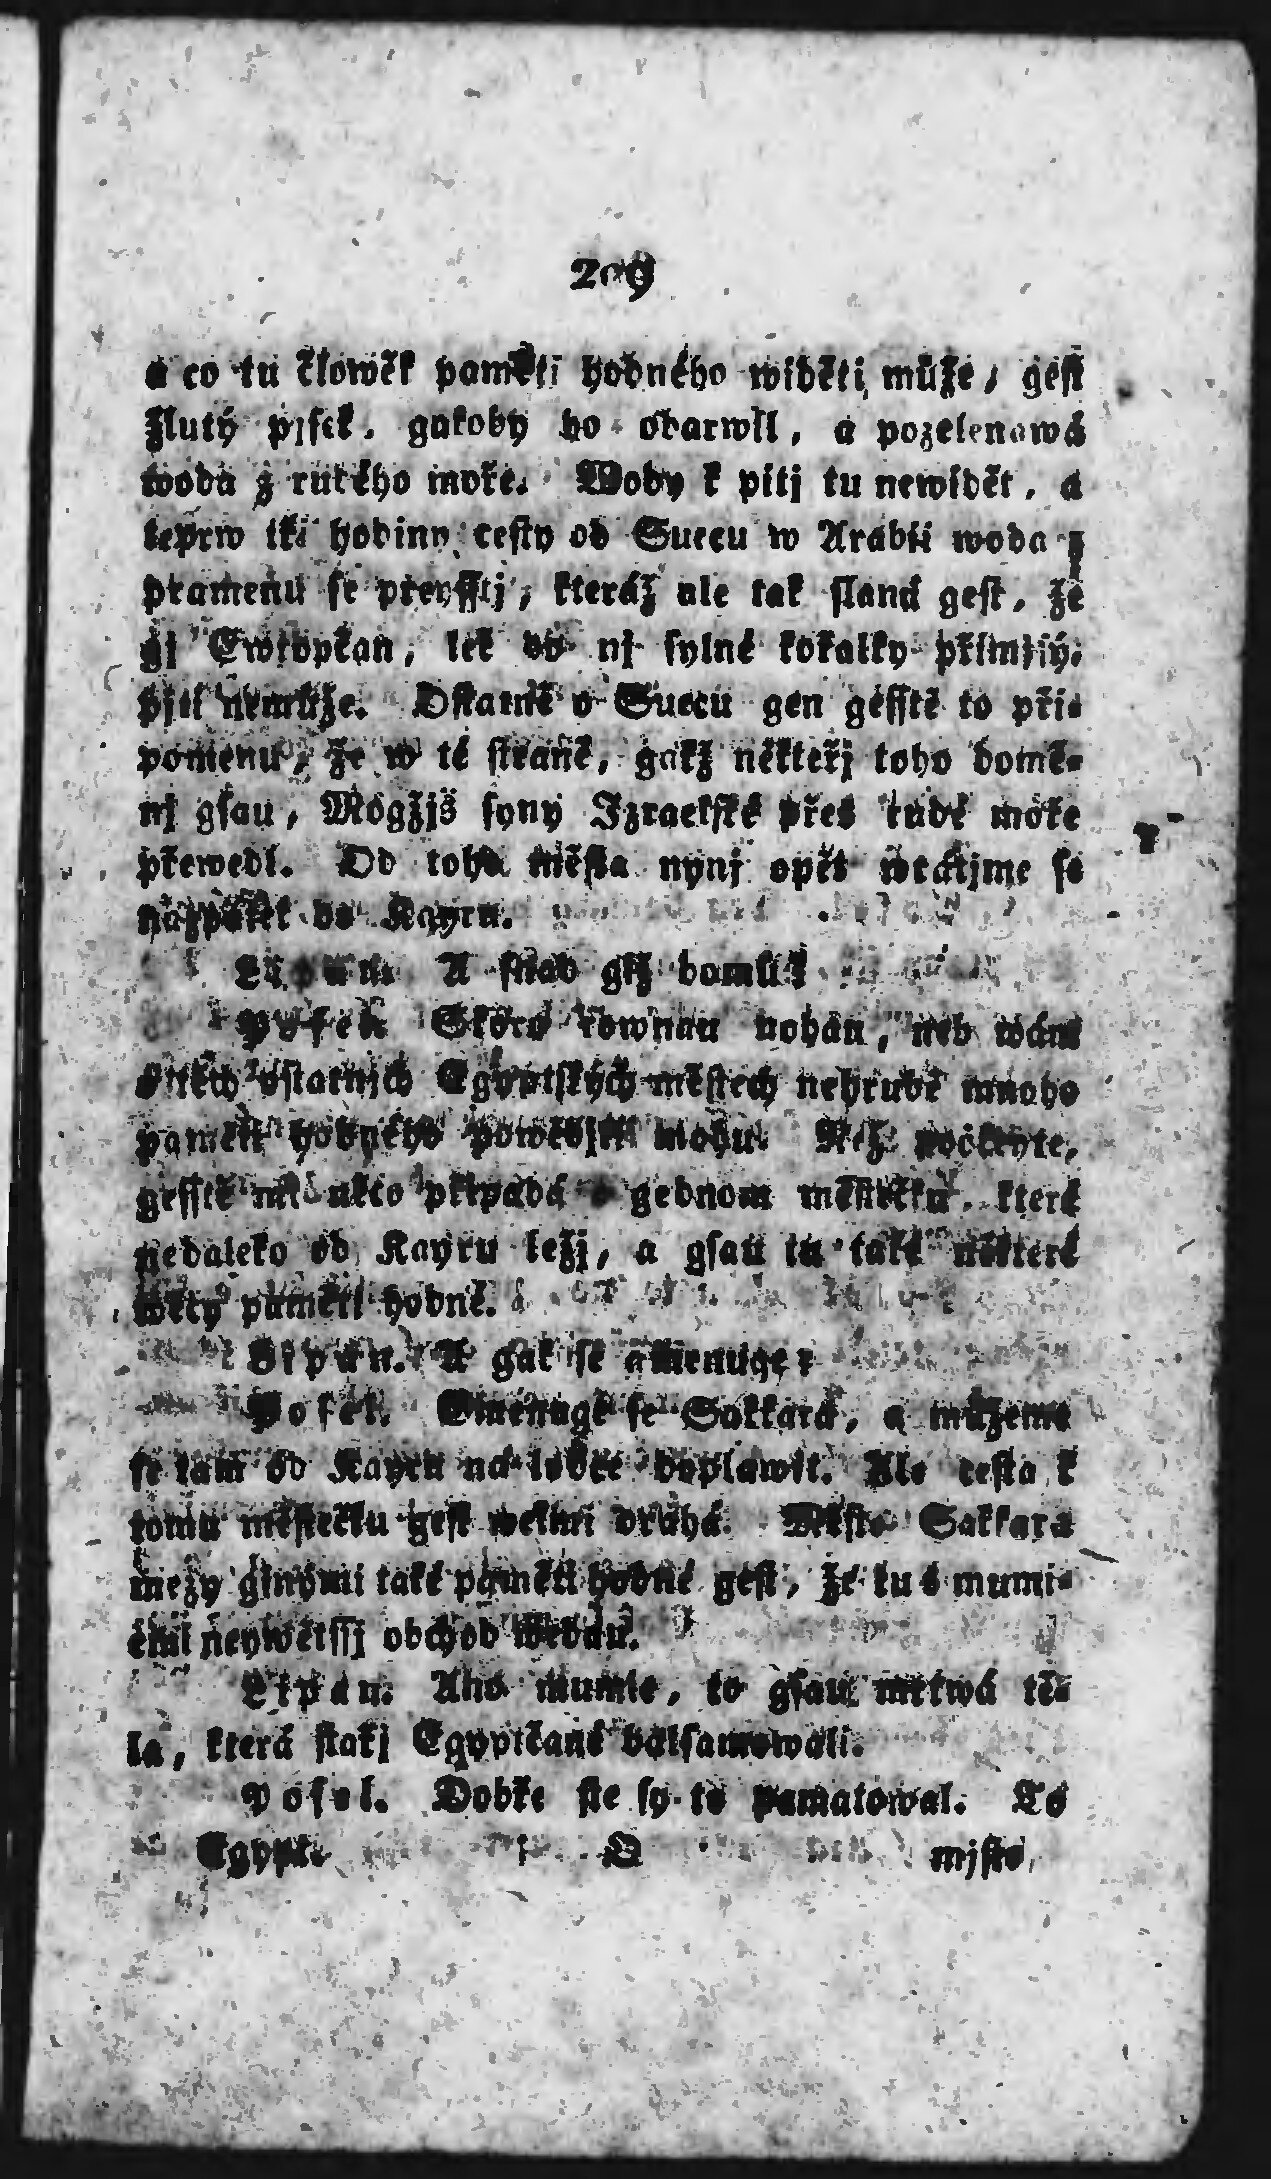 209
a co tu člowěk paměti hodného widěti může, gest
žlutý pjsek, gakoby ho obarwil, a pozelenawá
woda z rudého moře. Wody k pitj tu newidět, a
teprw tři hodiny cesty od Suecu w Arabii woda z
pramenu se preysstj, kteráž ale tak slaná gest, že
gi Ewropčan, lek do nj sylné kořalky přimjsý,
pjti nemůže. Ostatně o Suecu gen gesstě to při-
pomenu, že w té straně, gakž někteřj toho domě-
nj gsau, Mogžjš syny Izraelské přes rudé moře
přewedl. Od toho města nynj opět wraťjme se
nazpátek do Kayru.
Lipan. A snad giž domů?
Posel. Skoro rownau nohau, neb wám
o těch ostatnjch Egyptských městech nehrubě mnoho
paměti hodného powědjti mohu. Než počkeyte,
gesstě mi něco připadá o gednom městečku, které
nedaleko od Kayru ležj, a gsau tu také některé
wěcy paměti hodné.
Lipan. A gak se gmenuge?
Posel. Gmenuge se Sakkara, a můžeme
se tam od Kayru na lodce doplawit. Ale cesta k
tomu městečku gest welmi drahá. Město Sakkara
mezy ginými také paměti hodné gest, že tu s mumi-
emi neywětssj obchod wedau.
Lipan. Aha mumie, to gsau mrtwá tě-
la, která stařj Egypťané balsamowali.
Posel. Dobře ste sy to pamatowal. To
Egypt. O mjsto,